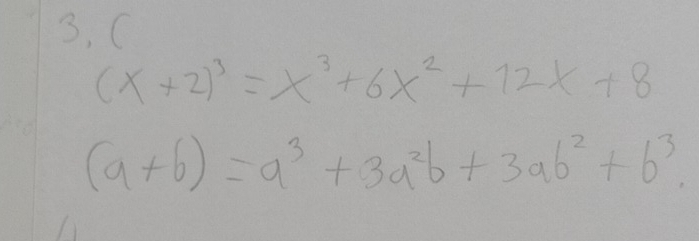 3. C
(x+2)³ = x³ + 6x² + 12x + 8
(a+b) = a³ + 3a²b + 3ab² + b³.